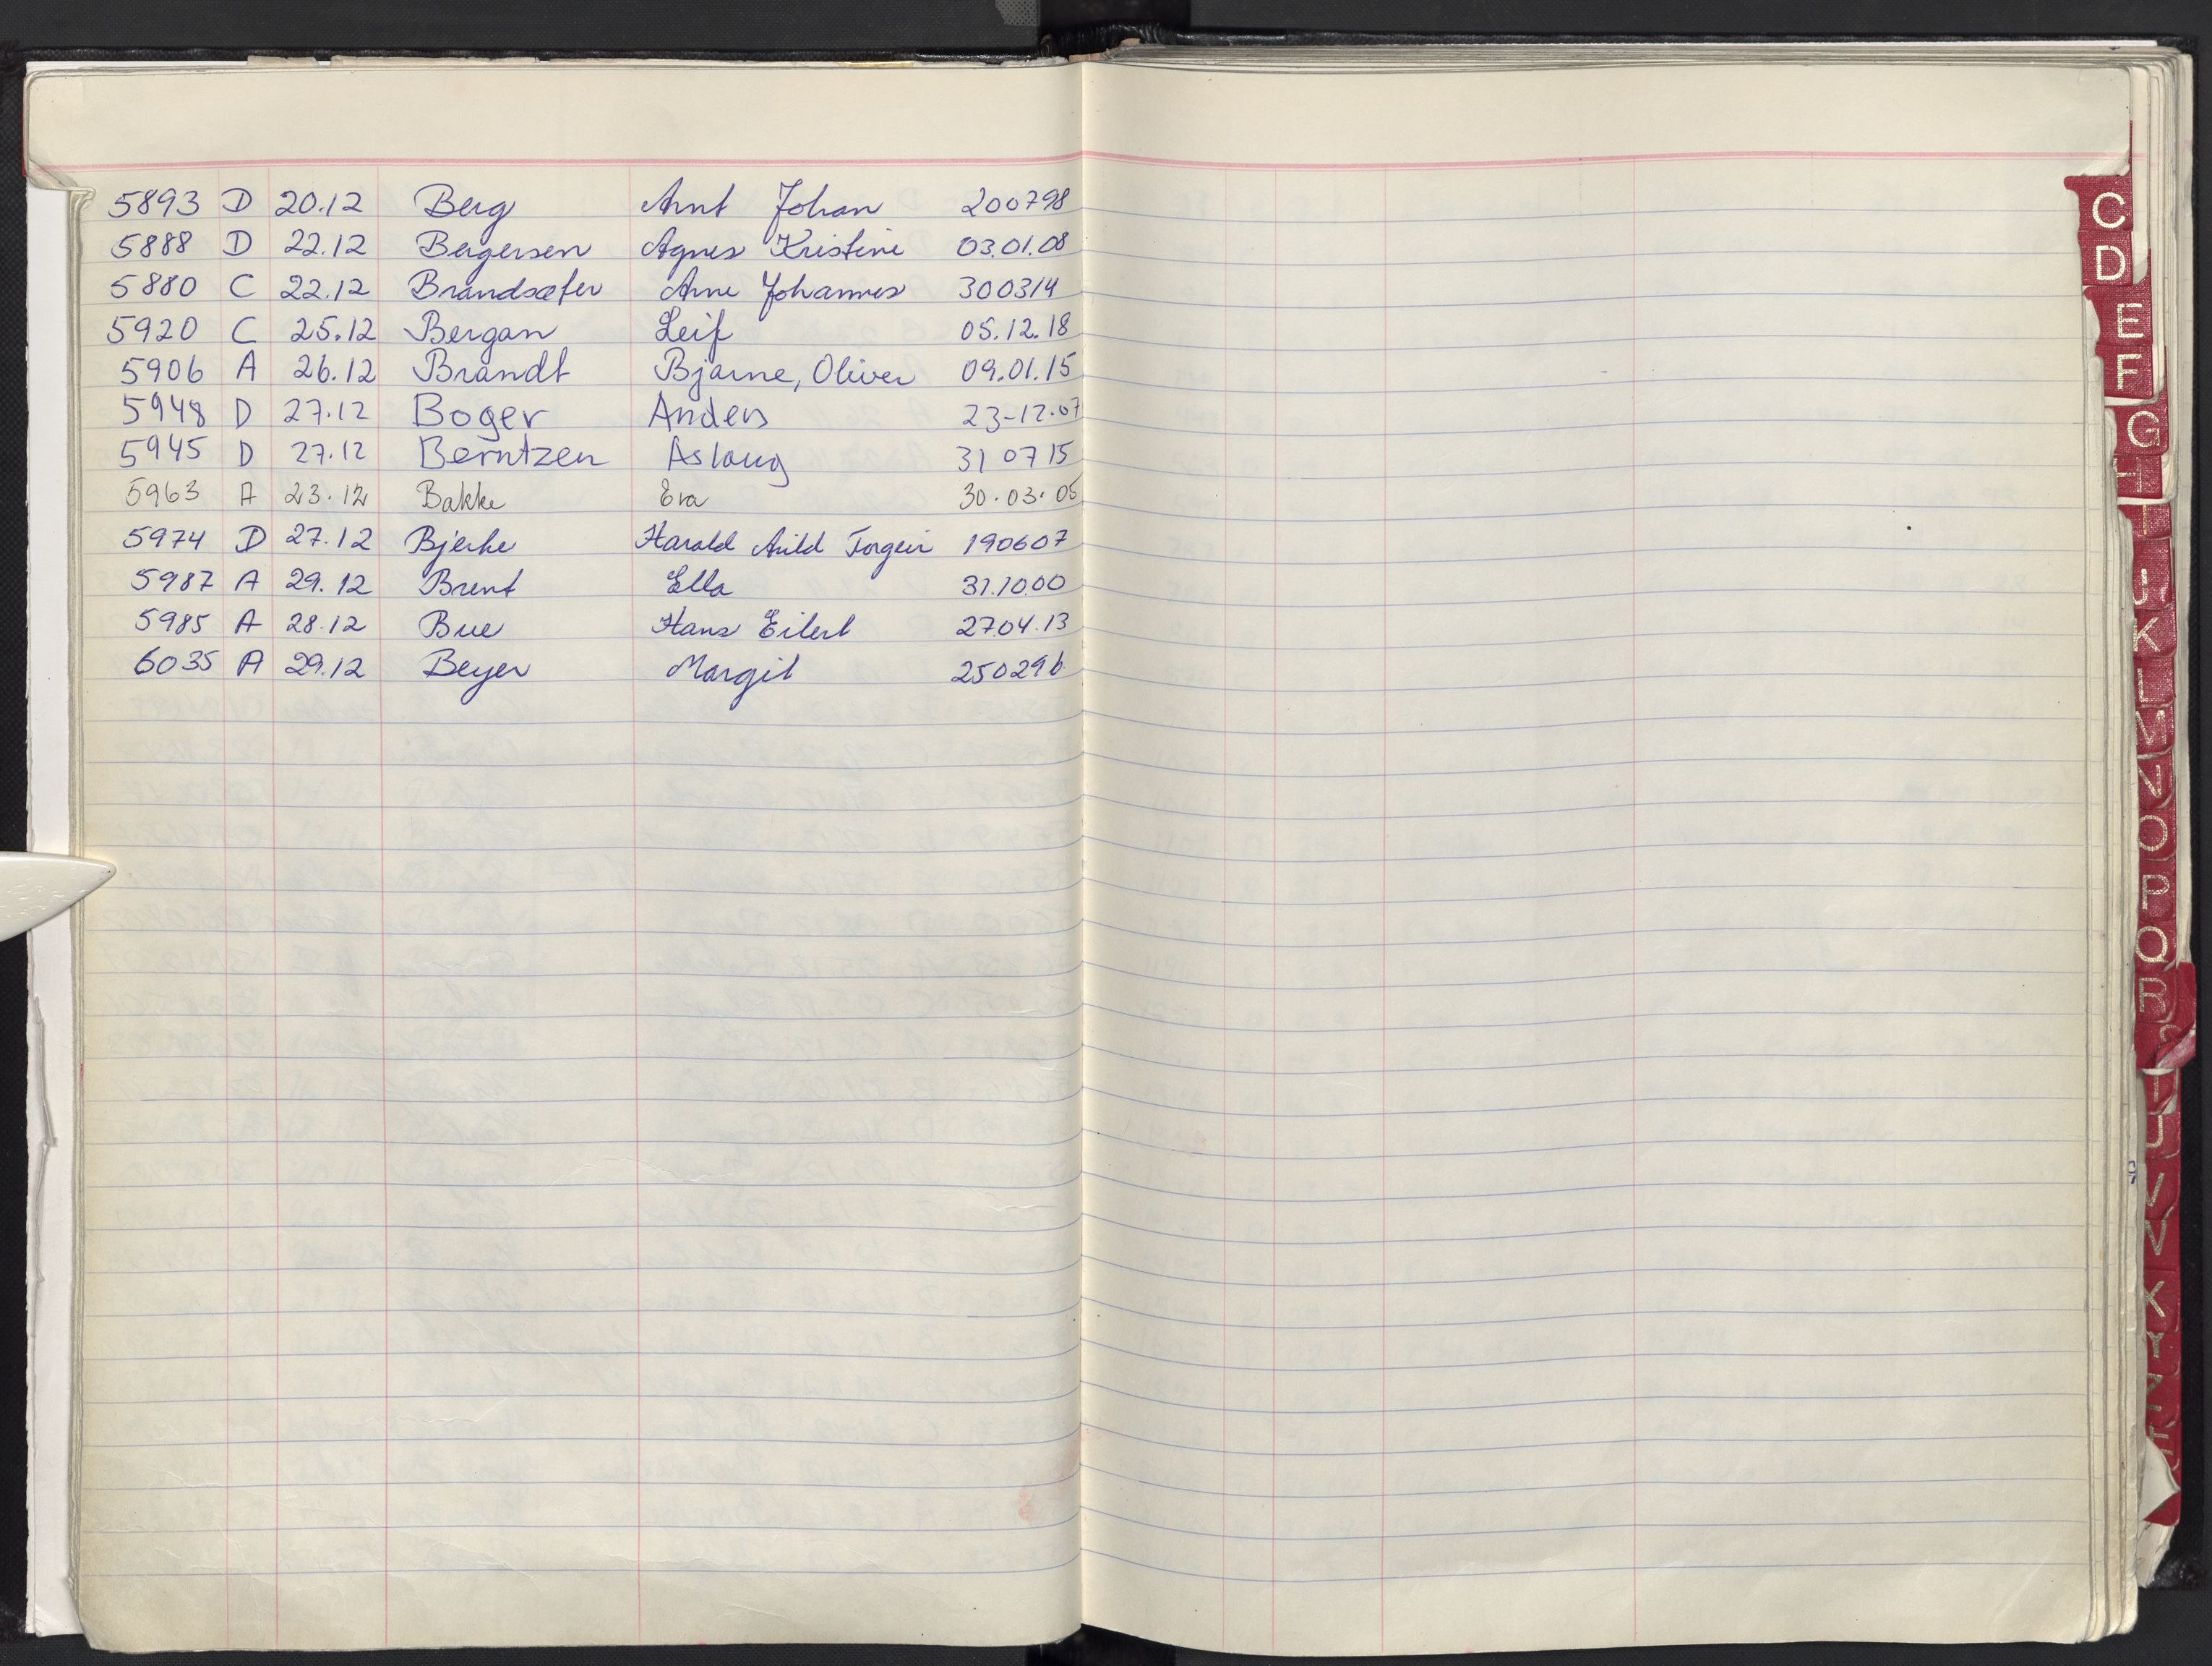 5893 D 20.12 Berg Arnt Johan 200798
5888 D 22.12 Bergersen Agnes Kristine 03.01.08
5880 C 22.12 Brandsæter Arne Johannes 300314
5920 C 25.12 Bergan Leif 05.12.18
5906 A 26.12 Brandt Bjarne, Oliver 09.01.15
5948 D 27.12 Boger Anders 23-12.07
5945 D 27.12 Berntzen Aslaug 31 07 15
5963 A 23.12 Bakke Eva 30.03.05
5974 D 27.12 Bjerke Harald Arild Torgeir 190607
5987 A 29.12 Brent Ella 31.10.00
5985 A 28.12 Bue Hans Eilert 27.04.13
6035 A 29.12 Beyer Margit 250296
C
D
E
F
G
H
I
J
K
L
M
N
O
P
Q
R
S
T
U
V
X
Y